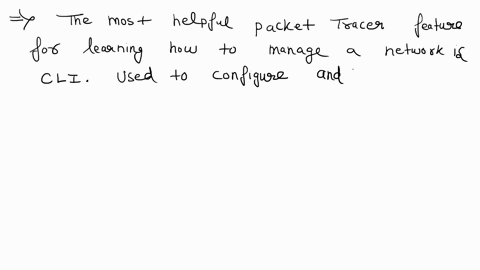 ⇒ The most helpful packet Tracer feature
for learning how to manage a network is
CLI. Used to configure and